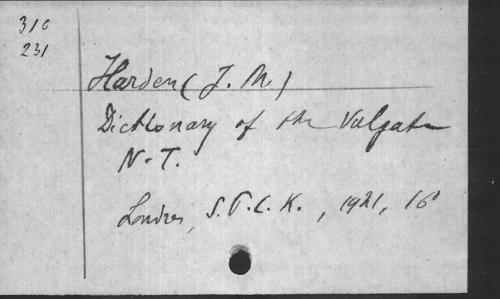 310
231
Harden (J. M)
Dictionary of the Vulgate
N.T.
Londres, S.P.C.K., 1921, 16°